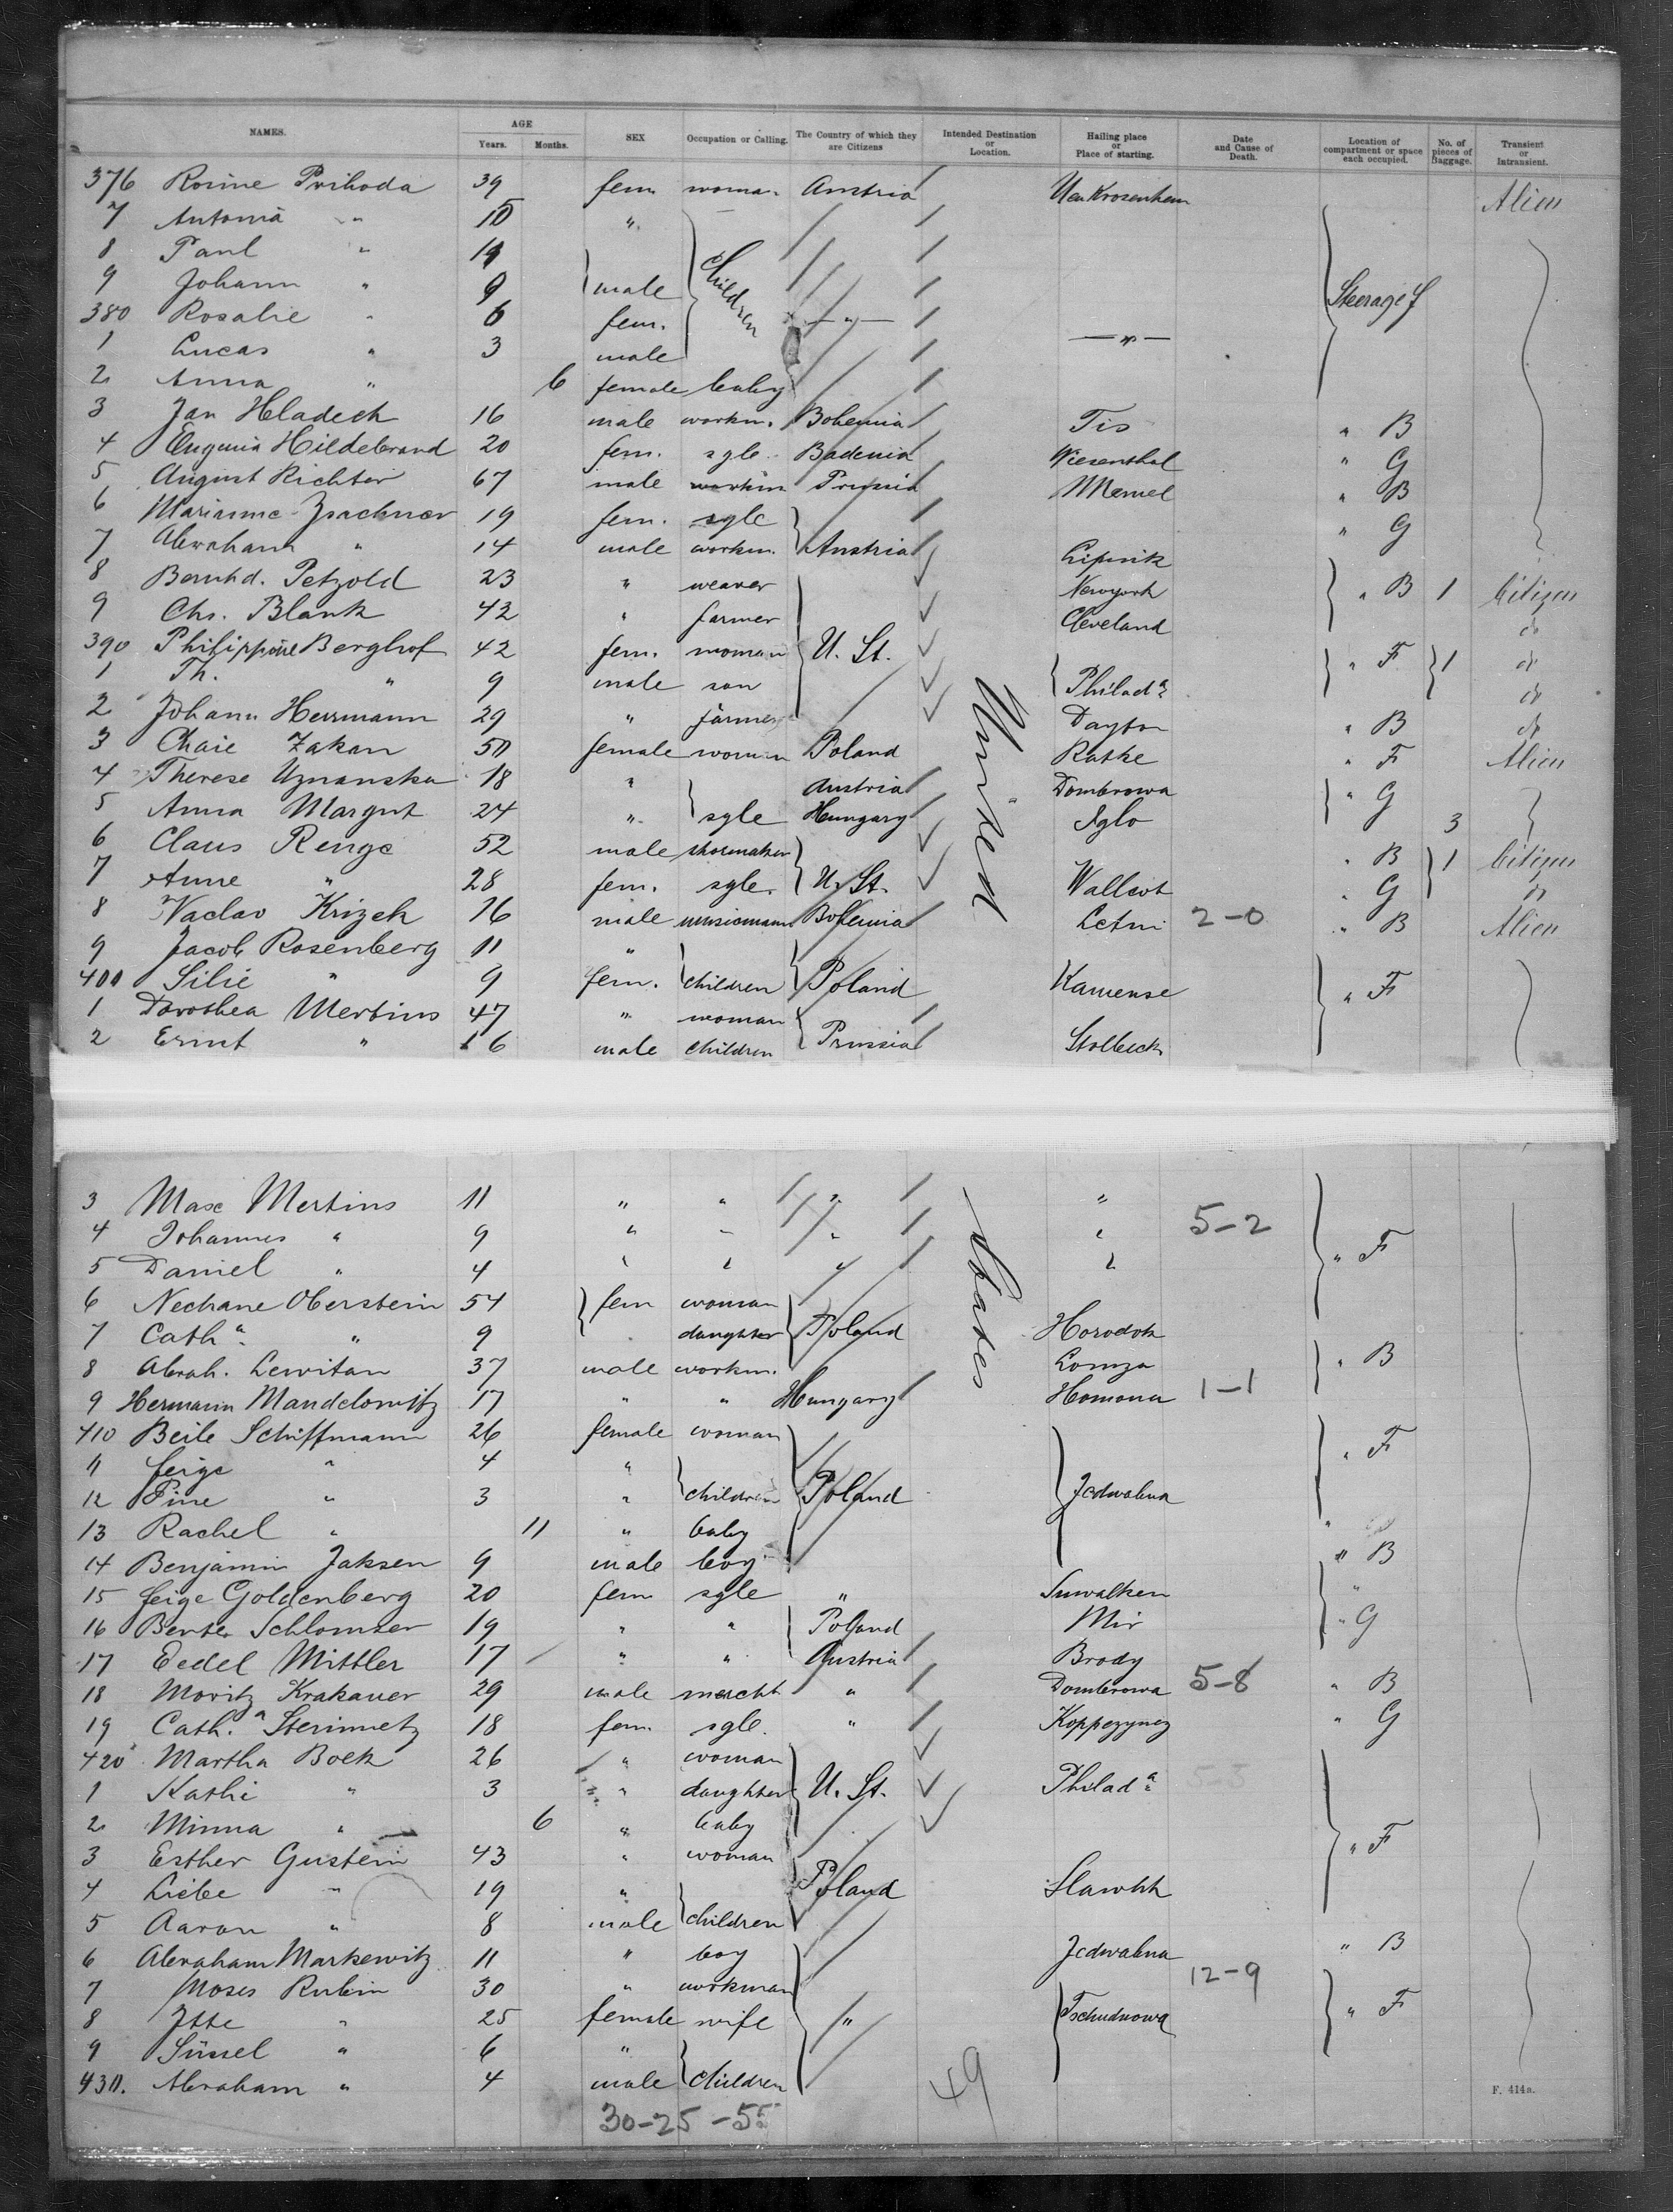 NAMES. AGE Years. Months. SEX Occupation or Calling. The Country of which they are Citizens Intended Destination or Location. Hailing place or Place of starting. Date and Cause of Death. Location of compartment or space each occupied. No. of pieces of Baggage. Transient or Intransient.
376 Rosine Prihoda 39 fem woman Austria Alien
7 Antonia " 10 "
8 Paul "
9 Johann " 9 male Children Steerage F
380 Rosalie " 6 fem. — " —
1 Lucas " 3 male — " —
2 Anna " 6 female baby
3 Jan Hladeck 16 male workm. Bohemia Tis " B
4 Eugenia Hildebrand 20 fem. sgle Badenia Wiesenthal " G
5 August Richter 67 male workm Prussia Memel " B
6 Marianne 19 fem. sgle " G
7 Abraham " 14 male workm. Austria Lipnik
8 Bernhd. Petzold 23 " weaver Newyork " B 1 Citizen
9 Chs. Blank 42 " farmer Cleveland do
390 Philippine Berghof 42 fem. woman U. St. " F 1 do
1 Th. " 9 male son Philada do
2 Johann Herrmann 29 " farmer Dayton " B do
3 Chaie Zakan 50 female woman Poland Ratke " F Alien
4 Therese Uznanska 18 " Austria Dombrowa " G
5 Anna Margut 24 " sgle Hungary Iglo 3
6 Claus Renge 52 male shoemaker " B 1 Citizen
7 Anne " 28 fem. sgle. U. St. Wallcot " G do
8 Vaclav Krizek 16 male musicmann Bohemia Letni 2-0 " B Alien
9 Jacob Rosenberg 11 "
400 Silie " 9 fem. children Poland Kamense " F
1 Dorothea Mertins 47 " woman
2 Ernst " 16 male children Prussia Stolbeck
United
3 Max Mertins 11 " " " "
4 Johannes " 9 " " " " 5-2
5 Daniel " 4 " " " " " F
6 Nechane Oberstein 54 fem woman
7 Catha. " 9 daughter Poland Horodok
8 Abrah. Lewitan 37 male workm. Lomza " B
9 Hermann Mandelowitz 17 " " Hungary Homona 1-1
States
410 Beile Schiffmann 26 female woman " F
11 Feige " 4 "
12 Pine " 3 " children Poland Jedwabna
13 Rachel " 11 " baby "
14 Benjamin Jaksen 9 male boy " B
15 Feige Goldenberg 20 fem sgle " Suwalken "
16 Schlomser 19 " " Poland Mir " G
17 Eedel Mittler 17 " " Austria Brody
18 Moritz Krakauer 29 male mercht " Dombrowa 5-8 " B
19 Cath.a Sterinmetz 18 fem. sgle. " Koppezynez " G
420 Martha Boek 26 " woman
1 Kathi " 3 " daughter U. St. Philada
2 Minna " 6 " baby " F
3 Esther Gustein 43 " woman
4 Liebe " 19 " Poland Slawkk
5 Aaron " 8 male children
6 Abraham Markewitz 11 " boy Jedwabna " B
7 Moses Rubin 30 " workman 12-9
8 Itte " 25 female wife " Tschudnowa " F
9 Süssel " 6 "
430. Abraham " 4 male children
30-25-55 49
F. 414a.